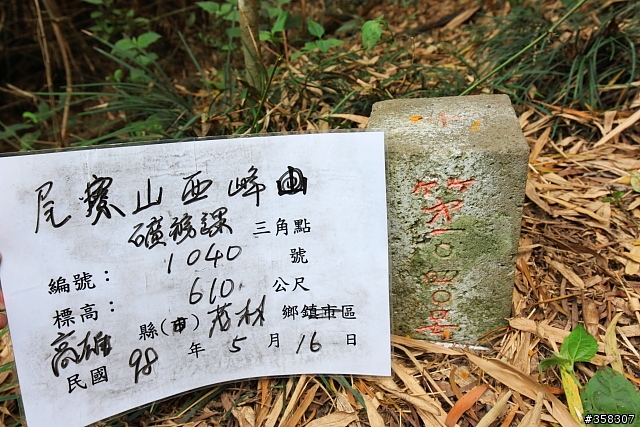 尾寮山西峰
礦務課 三角點
編號： 1040 號
標高： 610. 公尺
高雄 縣(市) 茂林 鄉鎮市區
民國 98 年 5 月 16 日
第一〇四〇号
#358307